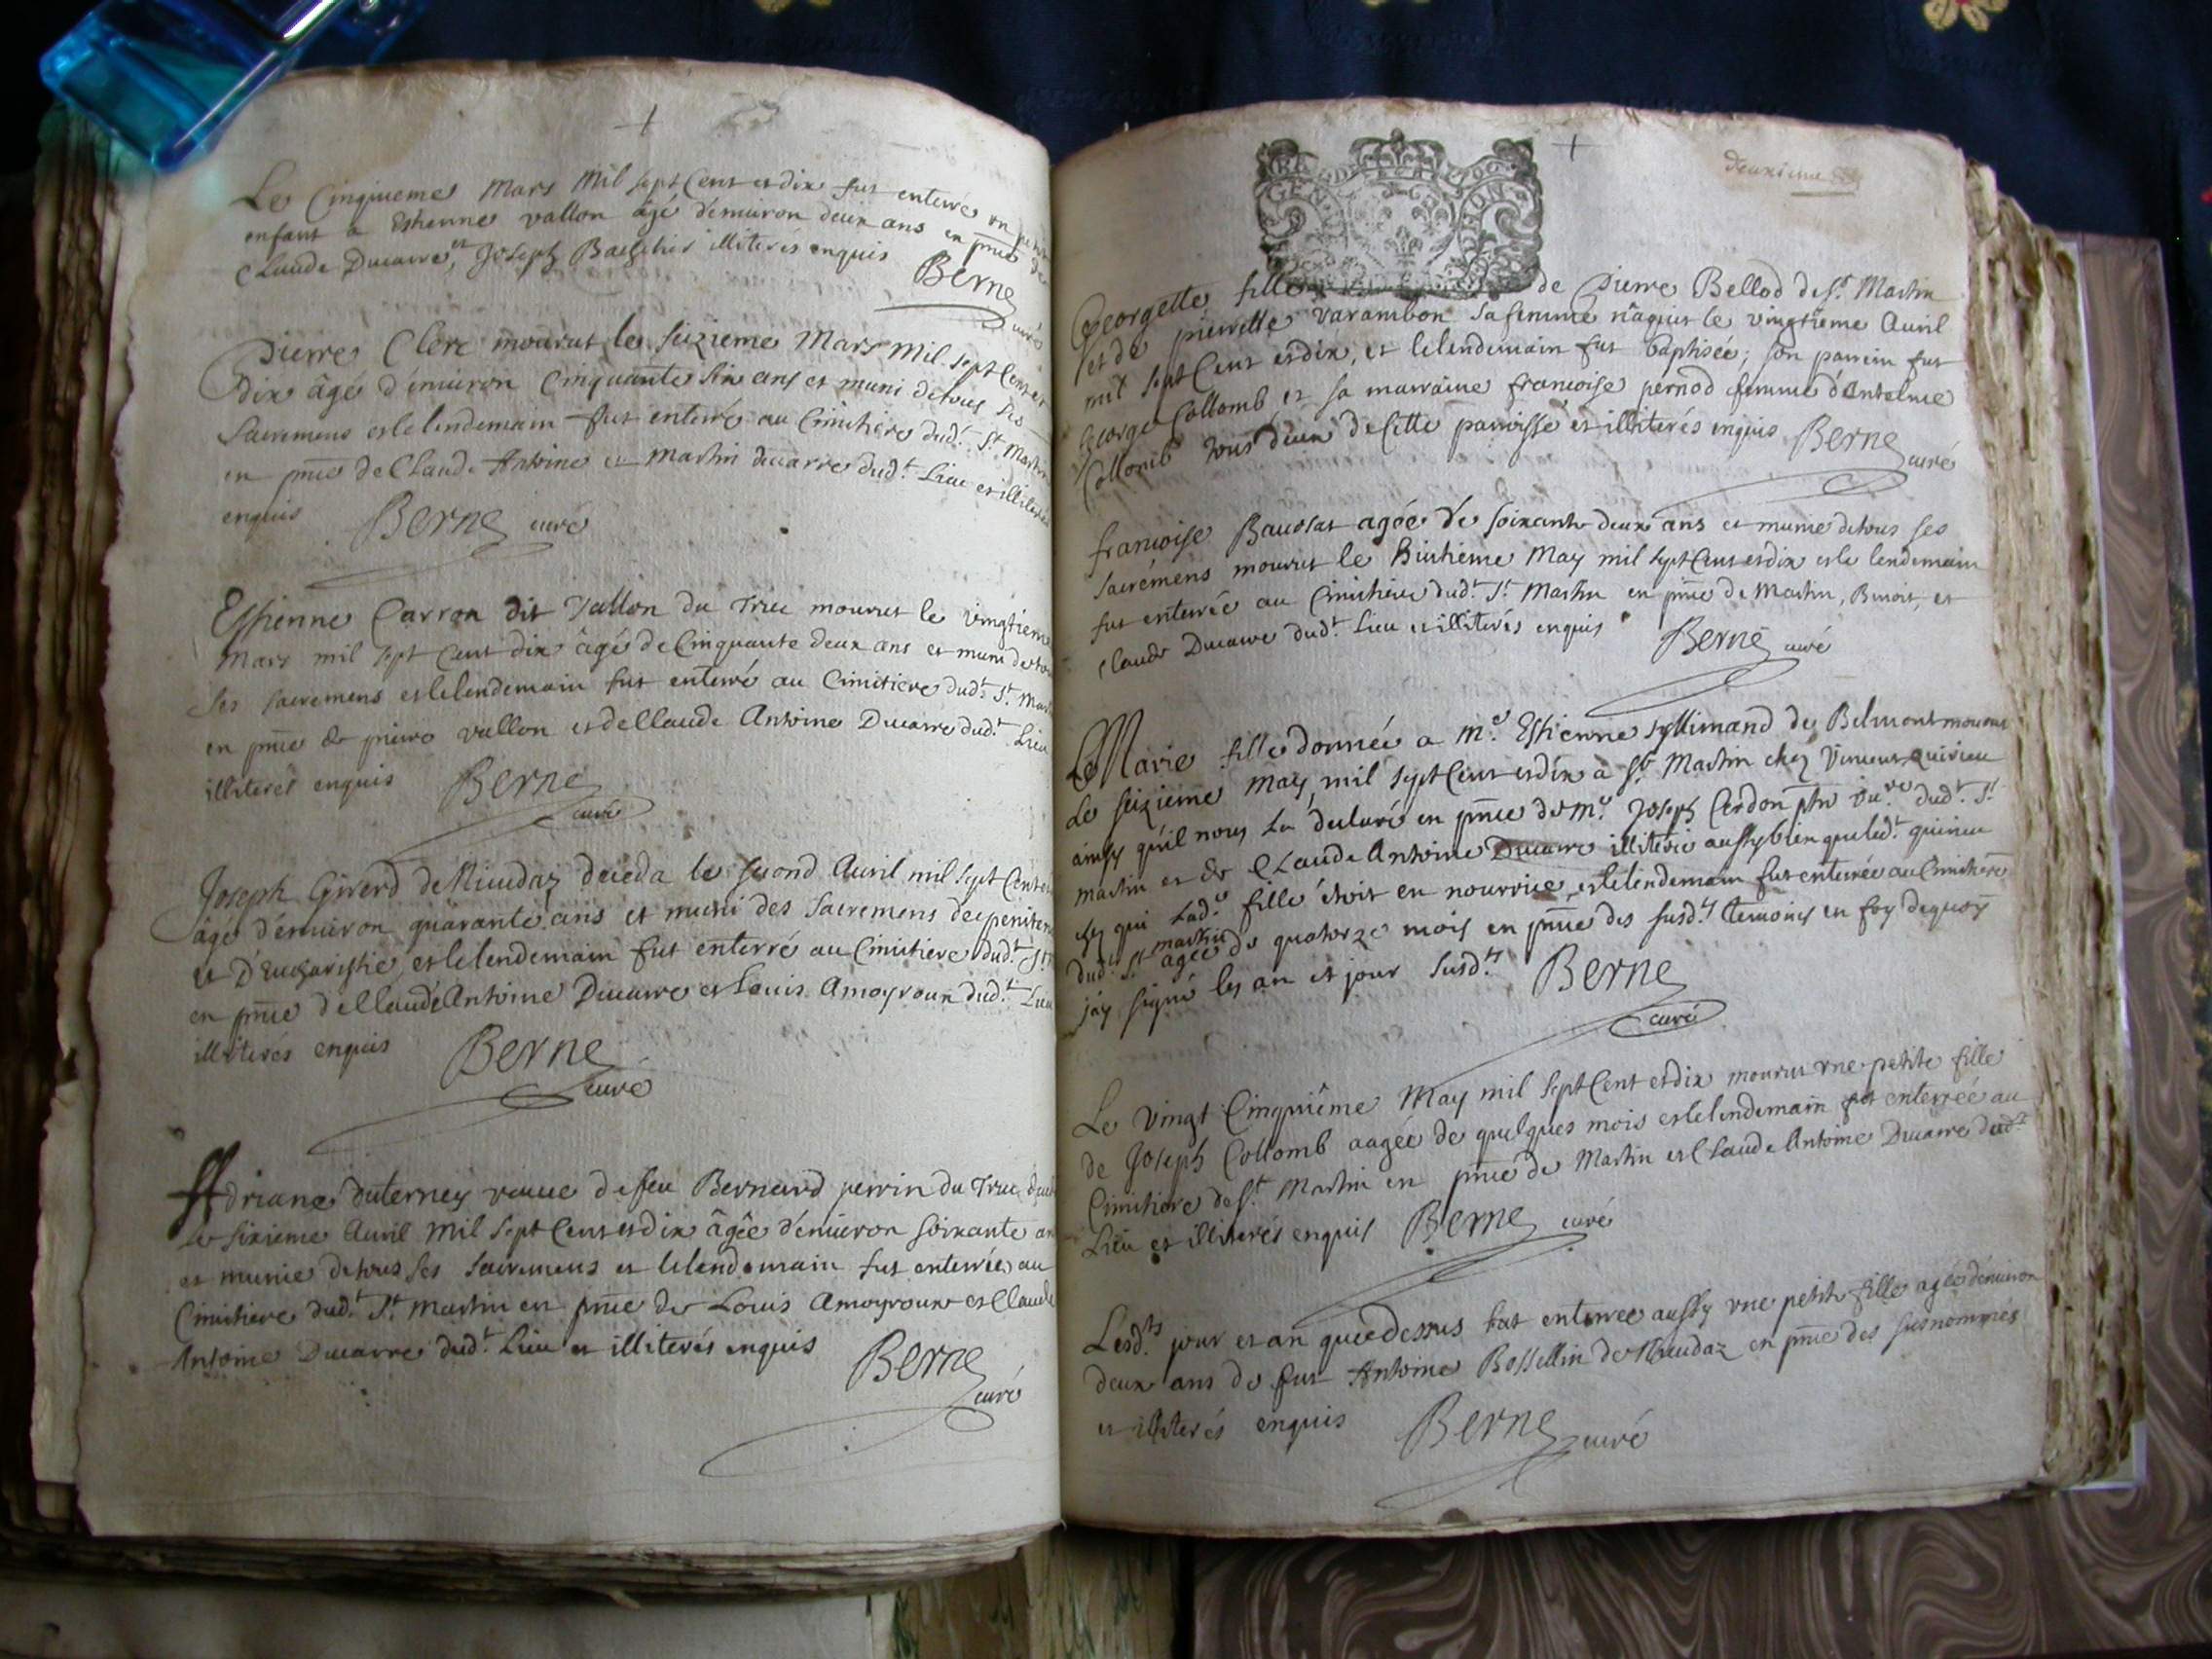 Le Cinquieme Mars Mil sept Cent et dix fut enterré un petit
enfant a Estienne vallon âgé d'emuiron deux ans en pnce de
Claude Ducarre, et Joseph illiterés enquis
Berne
curé
Pierre Clerc mourut le seizieme Mars Mil sept Cent et
dix âgé d'enuiron Cinquante six ans et muni de tous ses
Sacremens et le lendemain fut enterré au Cimitiere dud.t S.t Martin
en pnce de Claude Antoine et Martin ducarre dud.t Lieu et illiterés
enquis Berne curé
Estienne Carron dit Vallon du Truc mourut le vingtieme
Mars mil sept Cent dix âgé de Cinquante deux ans et muni de tous
ses sacremens et le lendemain fut enterré au Cimitiere dud.t S.t Martin
en pnce de pierre vallon et de Claude Antoine Ducarre dud.t Lieu
illiterés enquis Berne
curé
Joseph Girerd de Miudaz deceda le second Auril mil sept Cent et
âgé d'enuiron quarante ans et muni des Sacremens de penitence
et D'Eucharistie, et le lendemain fut enterré au Cimitiere dud.t S.t
en pnce de Claude Antoine Ducarre et Louis Amoyroux dud.t Lieu
illiterés enquis Berne
curé
Adriane duterney veuue de feu Bernard perrin du Truc
le sixieme Auril Mil sept Cent et dix âgée d'enuiron soixante ans
et munie de tous ses sacremens et le lendemain fut enterrée au
Cimitiere dud.t S.t Martin en pnce de Louis Amoyroux et Claude
Antoine Ducarre dud.t Lieu et illiterés enquis
Berne
curé
deuxieme
GEN
Georgette fille de Pierre Bellod de S.t Martin
et de pierrette varambon sa femme nâquit le vingtieme Auril
mil sept Cent et dix, et le lendemain fut baptisée; son parrein fut
George Collomb et sa marraine francoise pernod femme d'Antelme
Collomb tous deux de Cette parroisse et illiterés enquis Berne
curé
francoise Baudrat agée de soixante deux ans et munie de tous ses
sacrémens mourut le huitieme May mil sept Cent et dix et le lendemain
fut enterrée au Cimitiere dud.t S.t Martin en pnce de Martin, Benoit, et
Claude Ducarre dud.t Lieu et illiterés enquis Berne curé
Marie fille donnée a M.e Estienne de Belmont mourut
Le seizieme May mil sept Cent et dix à S.t Martin chez Vincent quirieu
ainsy qu'il nous La declaré en pnce de M.e Joseph Cerdon dud.t S.t
martin et de Claude Antoine Ducarre illiteré aussy bien que led.t quirieu
chez qui Lad.e fille étoit en nourrice, et le lendemain fut enterrée au Cimitiere
dud.t S.t martin agée de quatorze mois en pnce des susd.ts temoins en foy dequoy
j'ay signé les an et jour susd.ts Berne
curé
Le Vingt Cinquiême May mil sept Cent et dix mourut une petite fille
de Joseph Collomb aagée de quelques mois et le lendemain fut enterrée au
Cimitiere de S.t Martin en pnce de Martin et Claude Antoine Ducarre dud.t
Lieu et illiterés enquis Berne curé
Lesd.ts jour et an que dessus fut enterrée aussy une petite fille agée d'enuiron
deux ans de fut Antoine Bossellin de Miudaz en pnce des susnommés
et illiterés enquis Berne curé